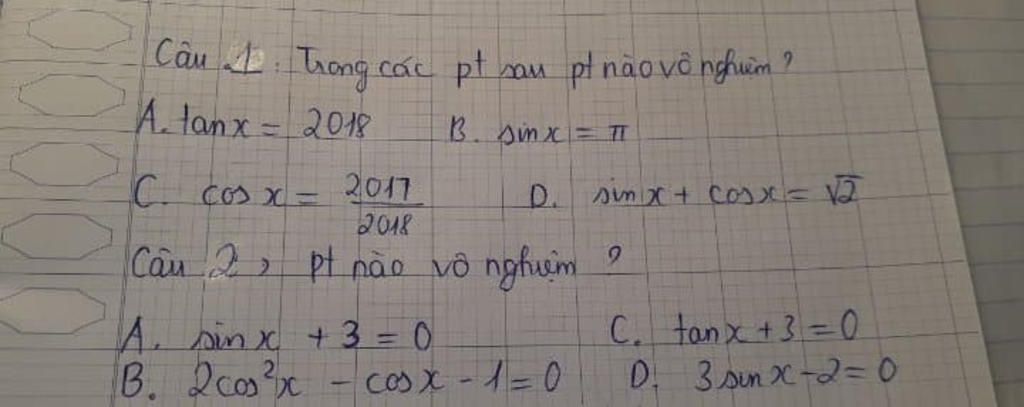 Câu 1. Trong các pt sau pt nào vô nghiệm?
A. tan x = 2018 B. sin x = π
C. cos x = 2017/2018 D. sin x + cos x = √2
Câu 2, pt nào vô nghiệm ?
A. sin x + 3 = 0 C. tan x + 3 = 0
B. 2cos²x - cos x - 1 = 0 D. 3 sin x - 2 = 0